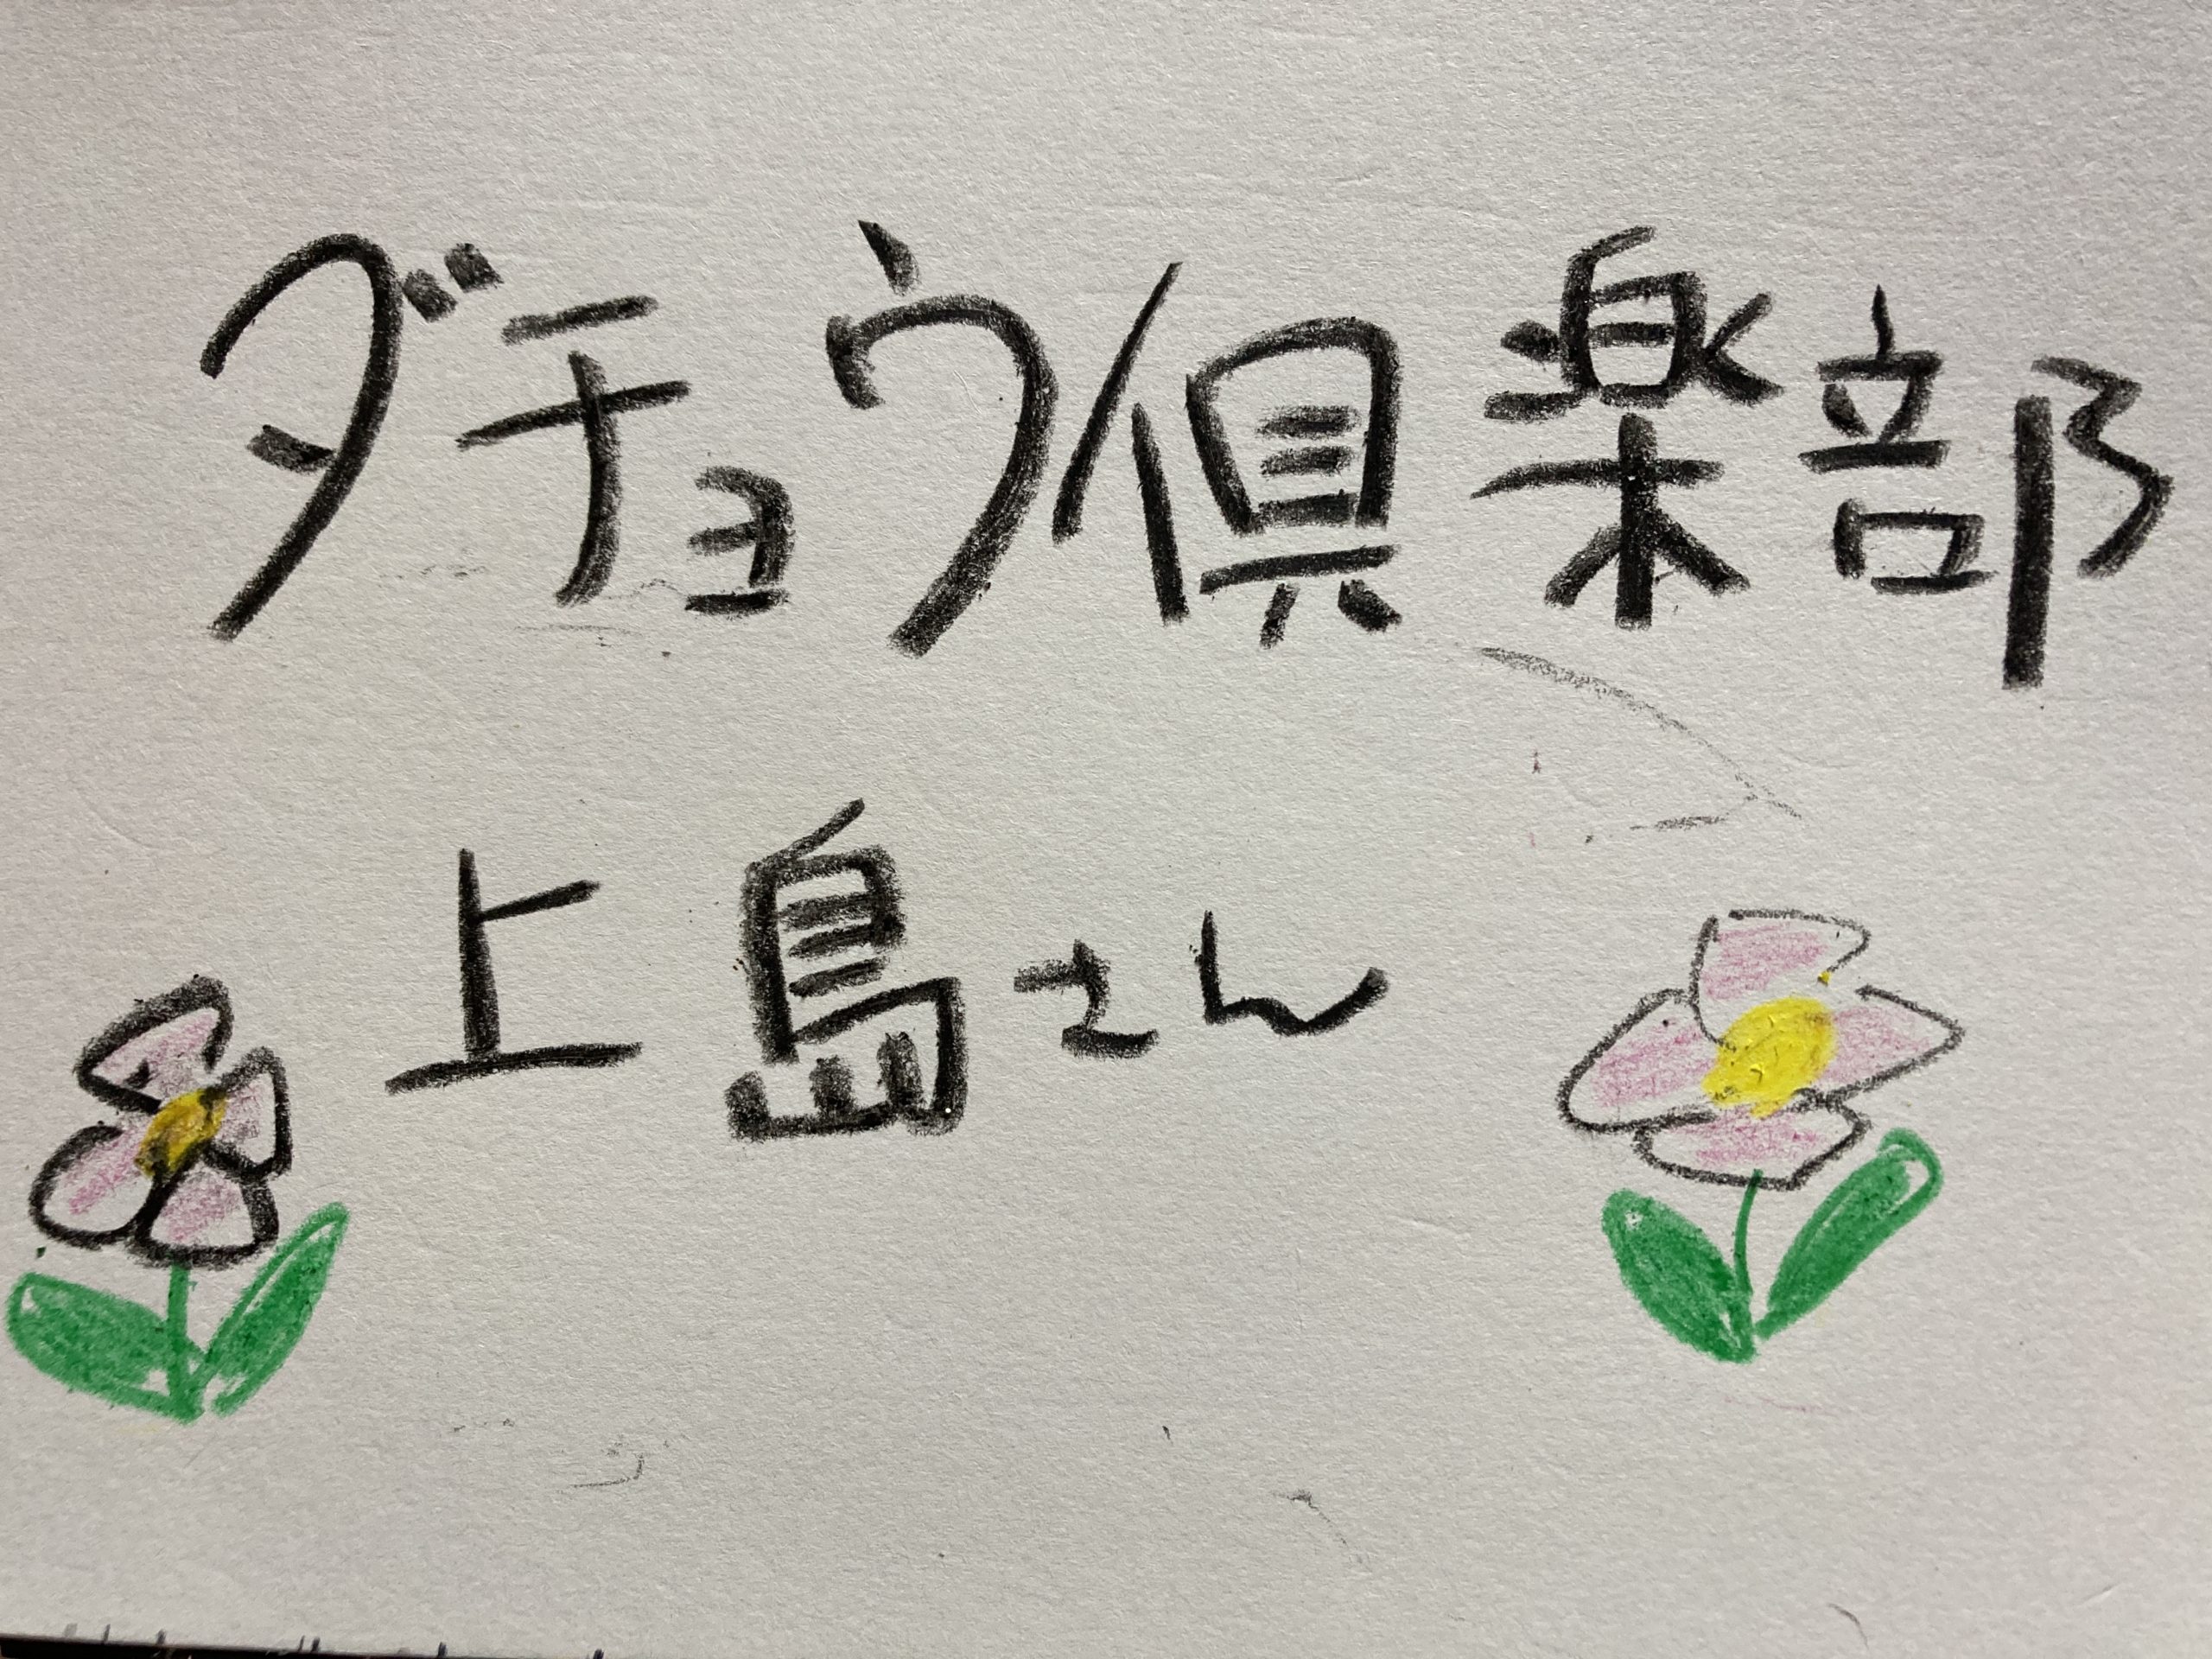 ダチョウ倶楽部
上島さん